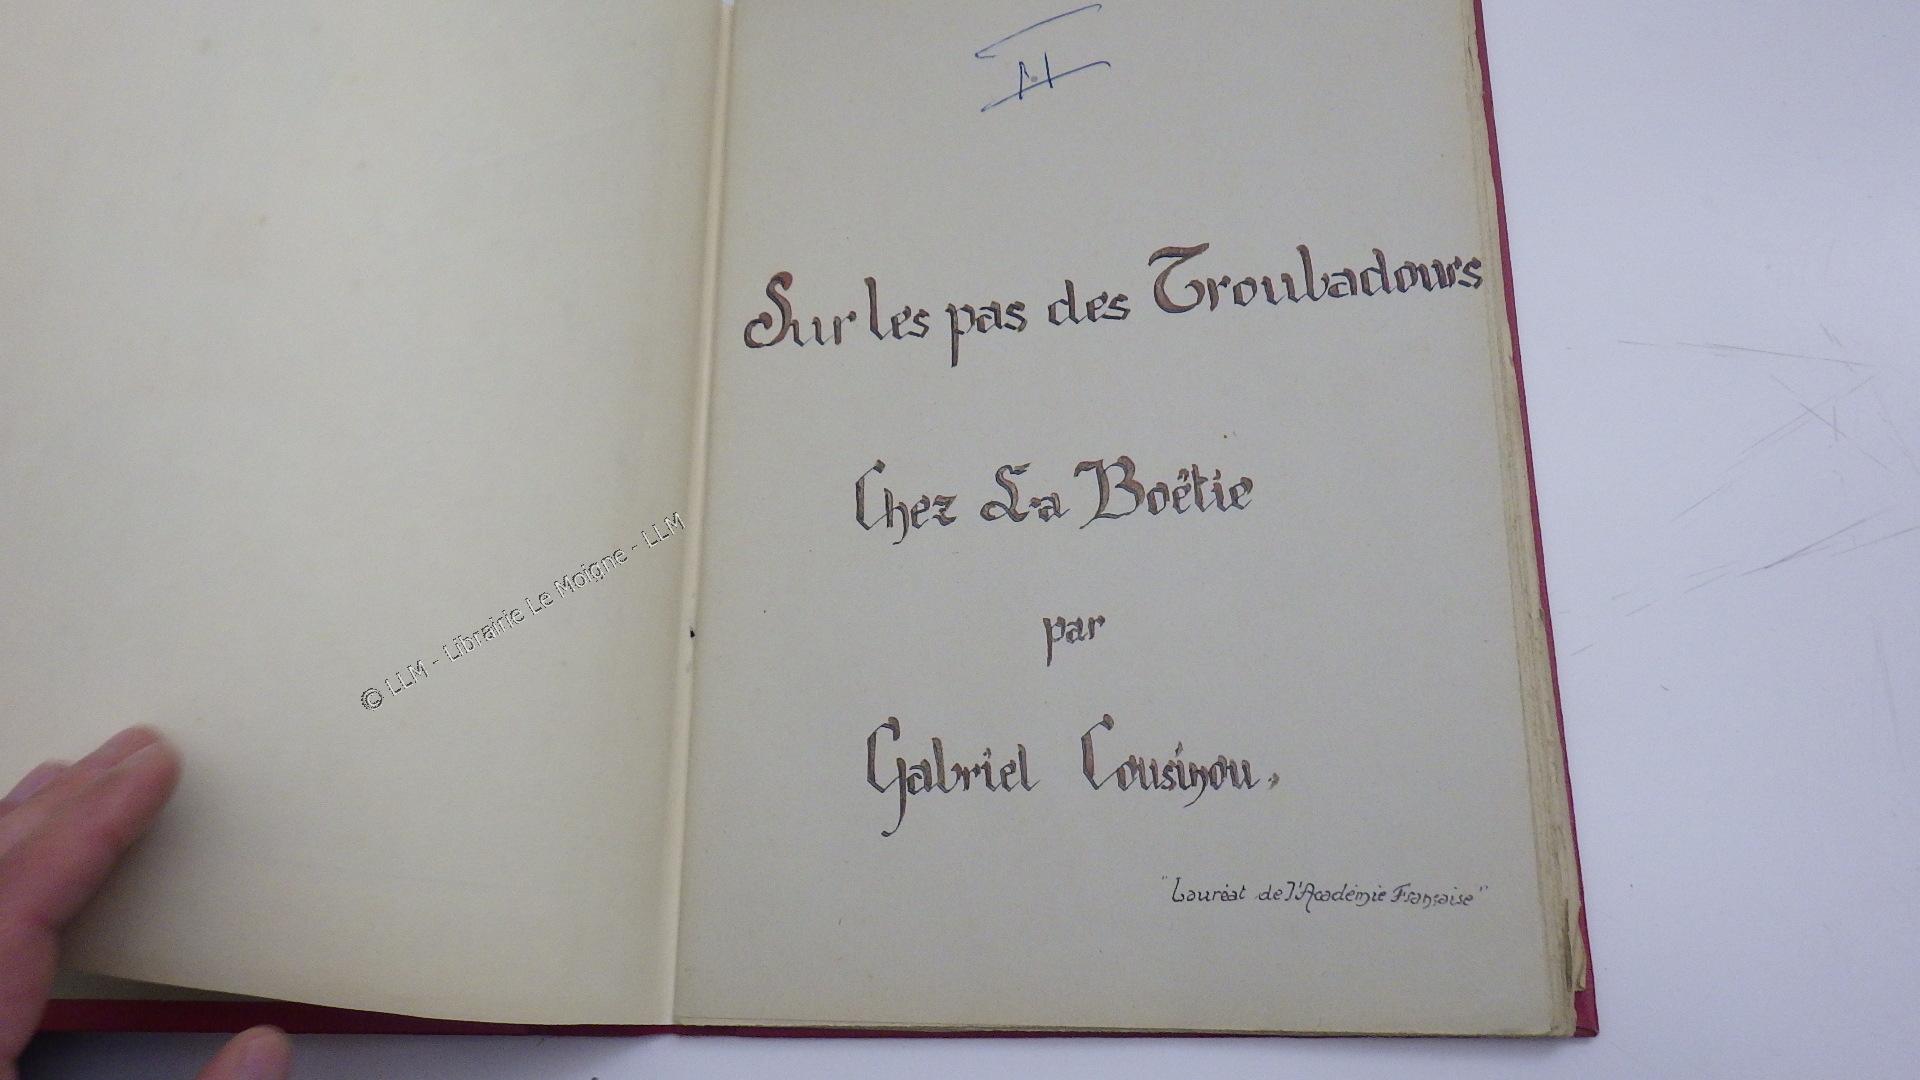 II
Sur les pas des Troubadours
Chez La Boëtie
par
Gabriel Cousinou.
"Lauréat de l'Académie Française"
© LLM - Librairie Le Moigne - LLM